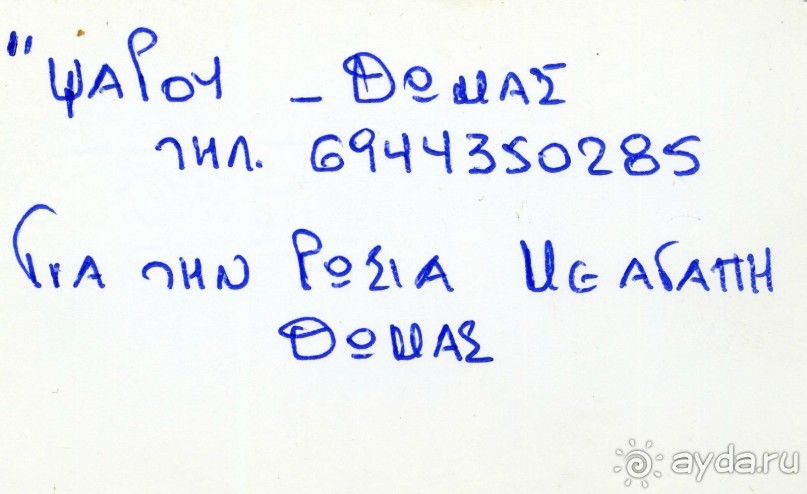 "ΨΑΡΟΥ - ΘΩΜΑΣ
ΤΗΛ. 6944350285
ΓΙΑ ΤΗΝ ΡΩΣΙΑ ΜΕ ΑΓΑΠΗ
ΘΩΜΑΣ
ayda.ru